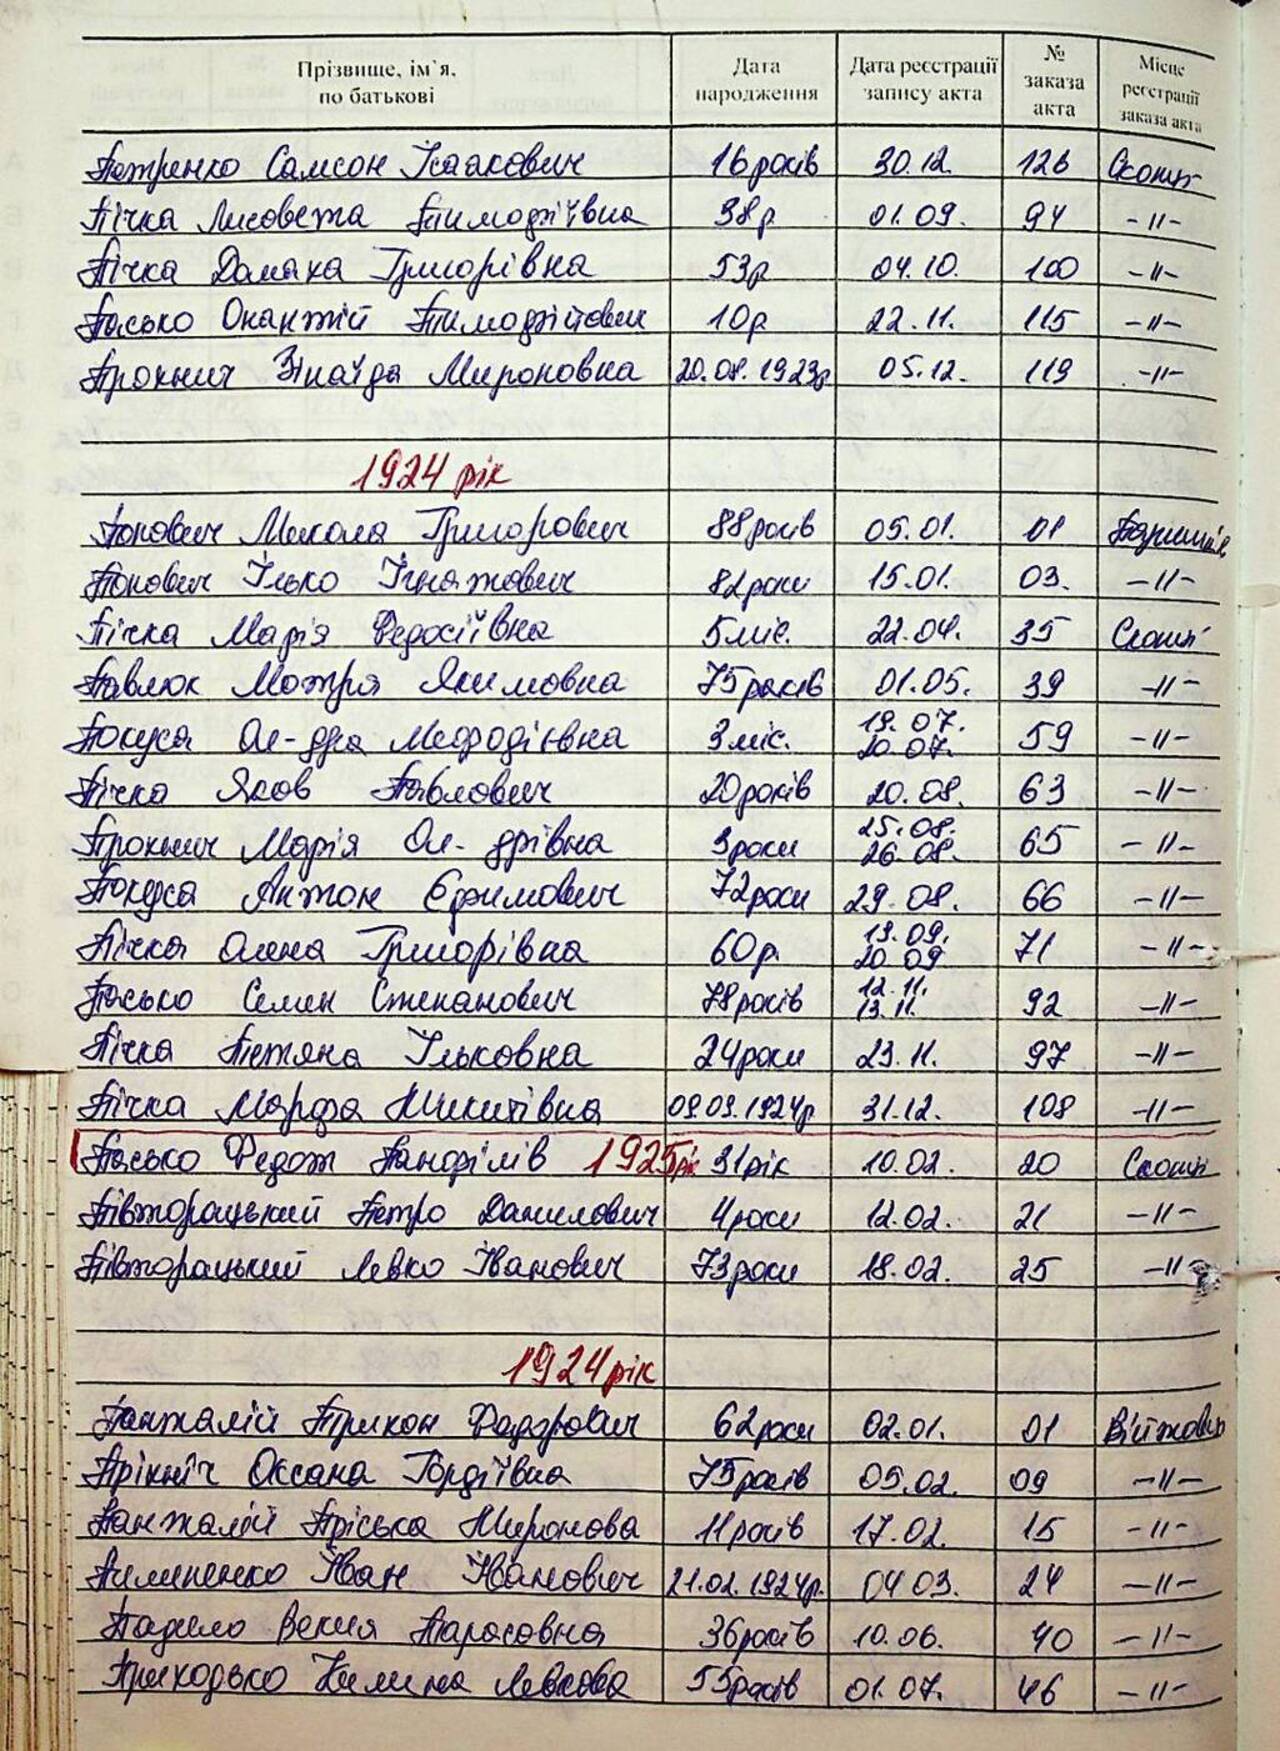 Прізвище, ім`я, по батькові | Дата народження | Дата реєстрації запису акта | № заказа акта | Місце реєстрації заказа акта
Петренко Самсон Ісаакович 16 років 30.12. 126
Пічка Лисовета Тимофіївна 38р. 01.09. 94 -//-
Пічка Домаха Григорівна 53р 04.10. 100 -//-
Пасько Онантій Тимофійович 10р. 22.11. 115 -//-
Прокнич Зінаїда Мироновна 20.08.1923р. 05.12. 119 -//-
1924 рік
Попович Микола Григорович 88 років 05.01. 01
Попович Ілько Ігнатович 82 роки 15.01. 03. -//-
Пічка Марія Федосіївна 5 міс. 22.04. 35
Павлюк Мотря Якимовна 75 років 01.05. 39 -//-
Покуса Ол-дра Мефодієвна 3 міс. 19.07. 20.07. 59 -//-
Пічка Яков Павлович 20 років 20.08. 63 -//-
Прокнич Марія Ол-дрівна 3 роки 25.08. 26.08. 65 -//-
Покуса Антон Єфимович 72 роки 29.08. 66 -//-
Пічка Олена Григорівна 60р. 19.09. 20.09 71 -//-
Пасько Семен Степанович 78 років 12.11. 13.11. 92 -//-
Пічка Тетяна Ільковна 24 роки 23.11. 97 -//-
Пічка Марфа Микитівна 09.09.1924р 31.12. 108 -//-
Пасько Федот Панфілів 1925 рік 31 рік 10.02. 20
Півторацький Петро Данилович 4 роки 12.02. 21 -//-
Півторацький Левко Іванович 73 роки 18.02. 25 -//-
1924 рік
Панталій Трихон Федорович 62 роки 02.01. 01
Прікніч Оксана Гордіївна 75 років 05.02. 09 -//-
Панталій Пріська Миронова 11 років 17.02. 15 -//-
Пилипенко Іван Іванович 21.02.1924р. 04.03. 24 -//-
Векля Тарасовна 36 років 10.06. 40 -//-
Приходько Килина Левкова 55 років 01.07. 46 -//-